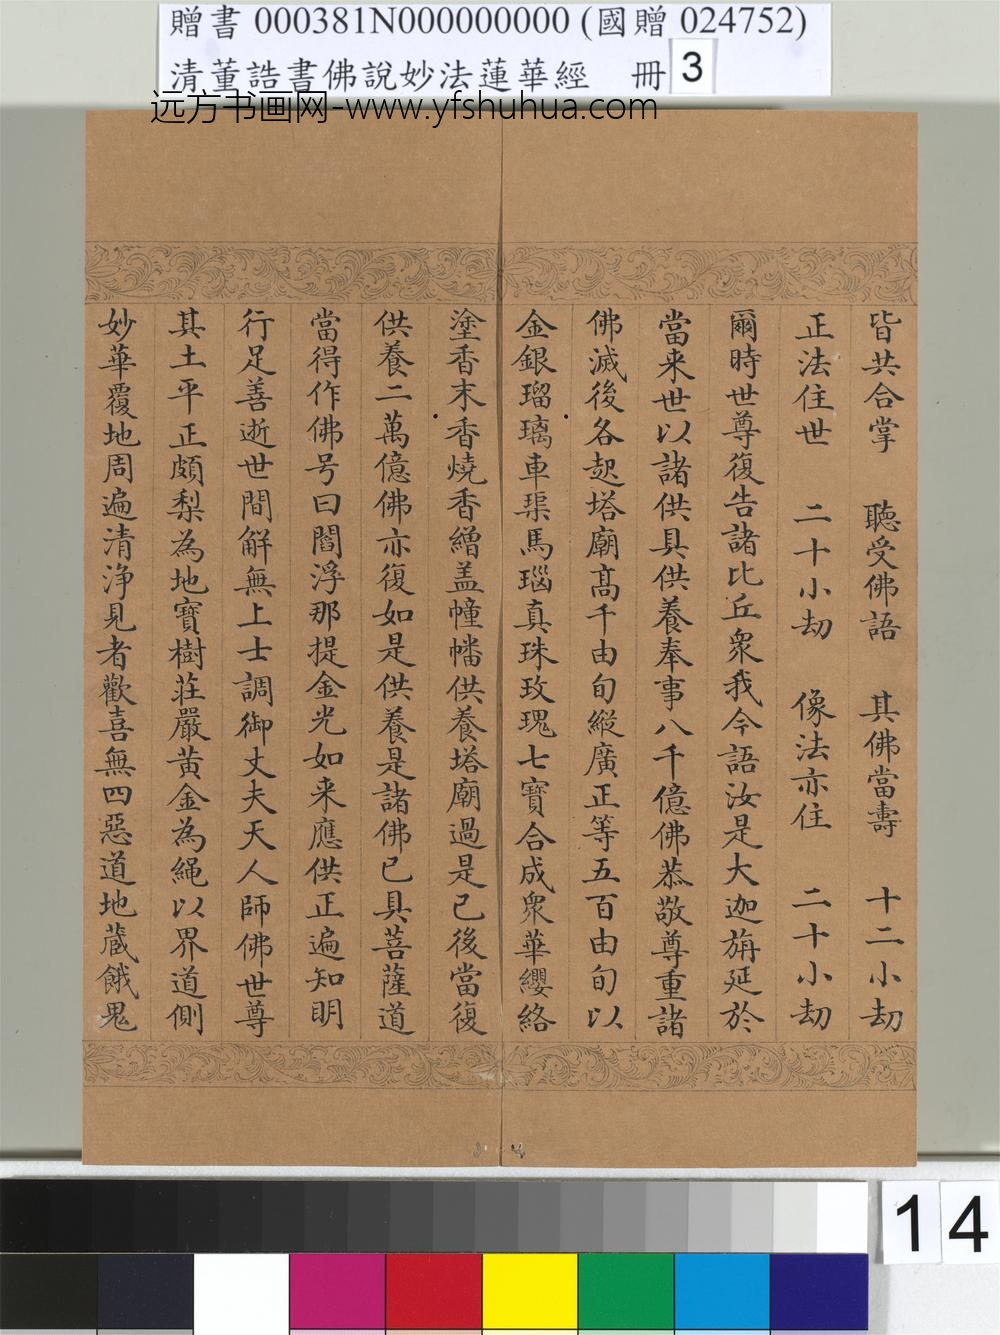 贈書 000381N000000000 (國贈 024752)
清董誥書佛說妙法蓮華經 冊 3
远方书画网-www.yfshuhua.com
皆共合掌 聽受佛語 其佛當壽 十二小劫
正法住世 二十小劫 像法亦住 二十小劫
爾時世尊復告諸比丘眾我今語汝是大迦旃延於
當来世以諸供具供養奉事八千億佛恭敬尊重諸
佛滅後各起塔廟高千由旬縱廣正等五百由旬以
金銀瑠璃車渠馬瑙真珠玫瑰七寶合成眾華纓絡
塗香末香燒香繒盖幢幡供養塔廟過是已後當復
供養二萬億佛亦復如是供養是諸佛已具菩薩道
當得作佛号曰閻浮那提金光如来應供正遍知明
行足善逝世間解無上士調御丈夫天人師佛世尊
其土平正頗梨為地寶樹莊嚴黃金為繩以界道側
妙華覆地周遍清淨見者歡喜無四惡道地蔵餓鬼
14